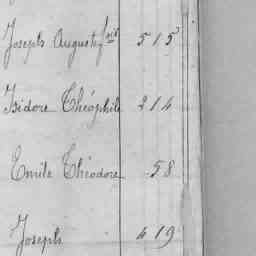 Joseph Auguste fois 515
Isidore Théophile 214
Emile Théodore 58
Joseph 419